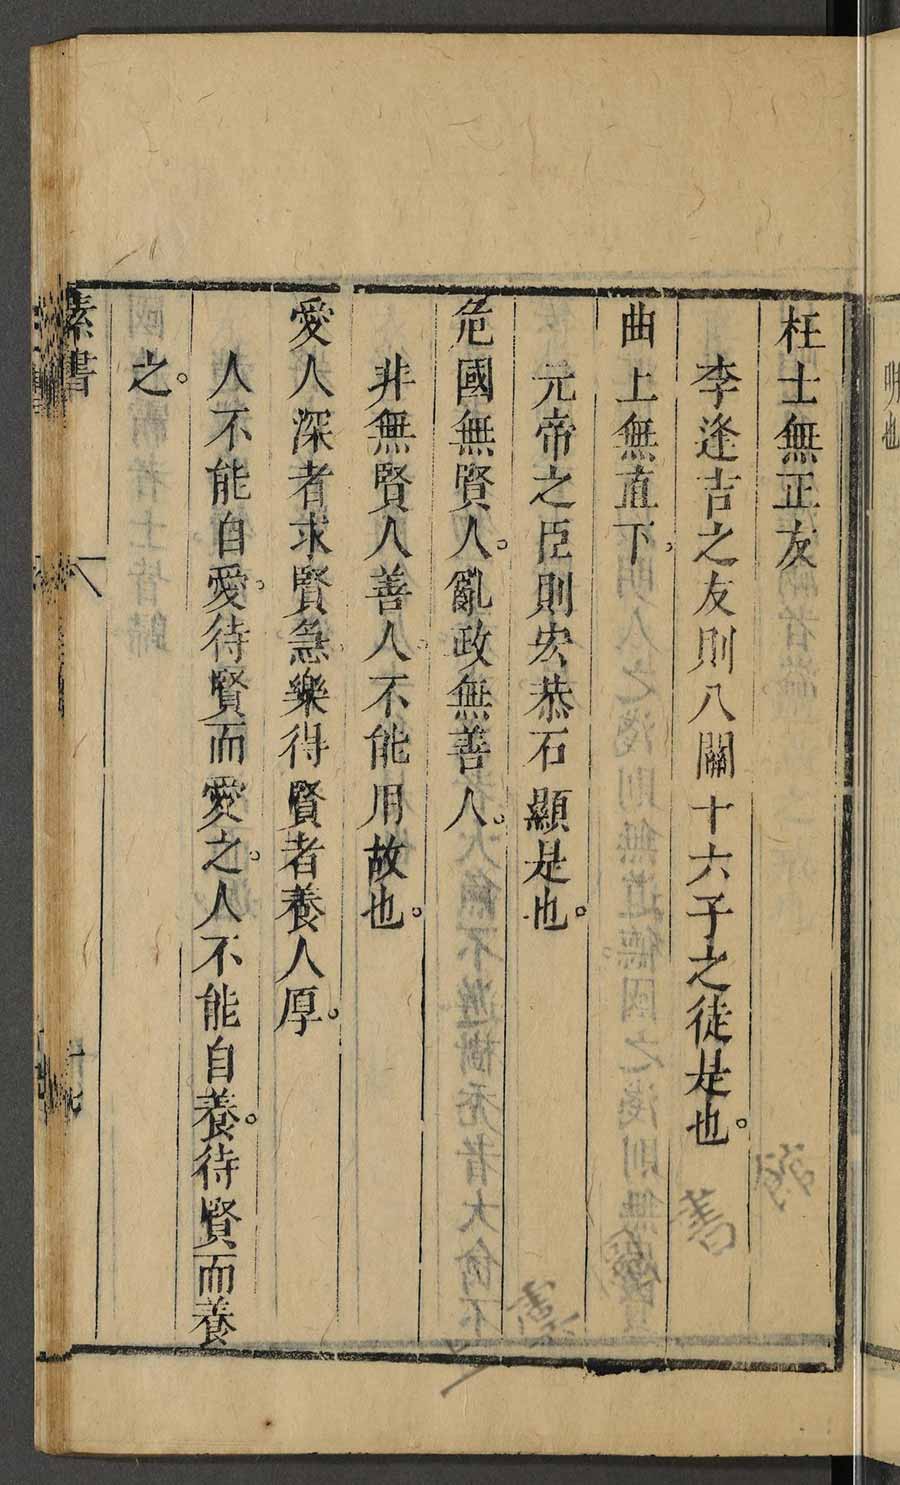 明也
枉士無正友
李逢吉之友則八關十六子之徒是也。
曲上無直下。
元帝之臣則宏恭石顯是也。
危國無賢人。亂政無善人。
非無賢人善人。不能用故也。
愛人深者求賢急。樂得賢者養人厚。
人不能自愛。待賢而愛之。人不能自養。待賢而養
之。
素書